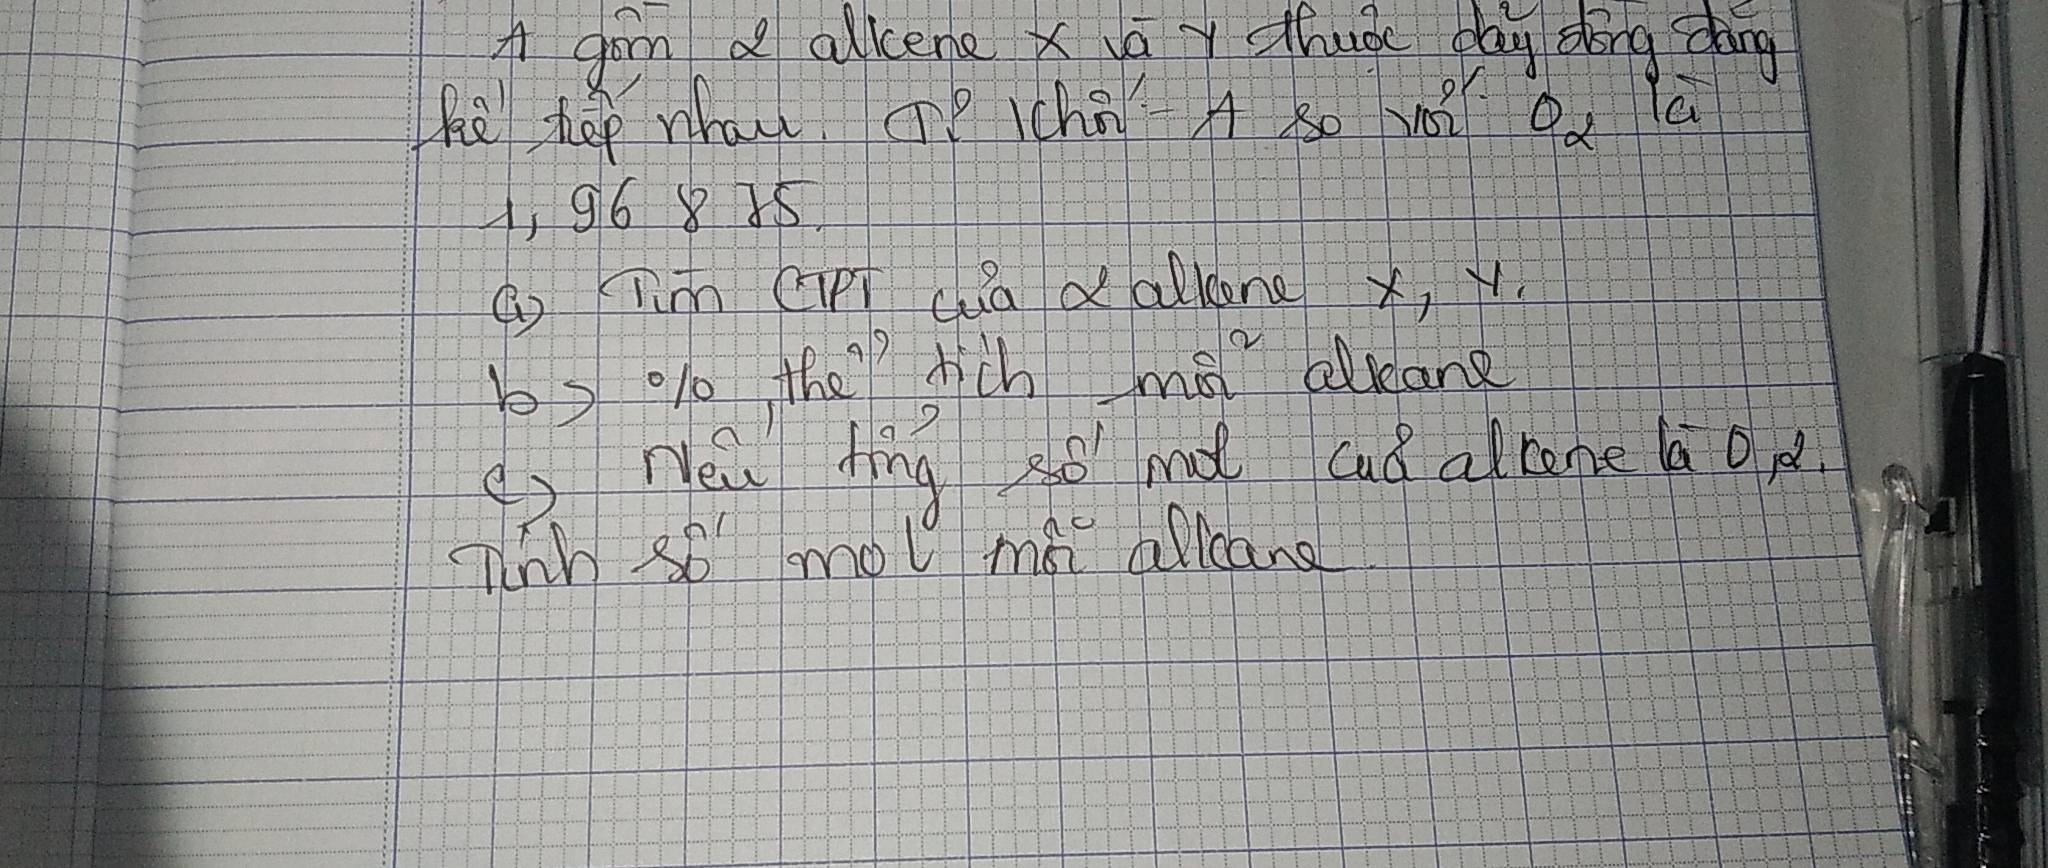 A gồm 2 alkene X và Y thuộc dãy đồng đẳng
kế tiếp nhau. Tỉ khối A so với O2 là
1,96875.
a) Tìm CTPT của 2 alkene X, Y.
b) % thể tích mỗi alkane
c) Nếu tổng số mol của alkene là 0,2.
Tính số mol mỗi alkane